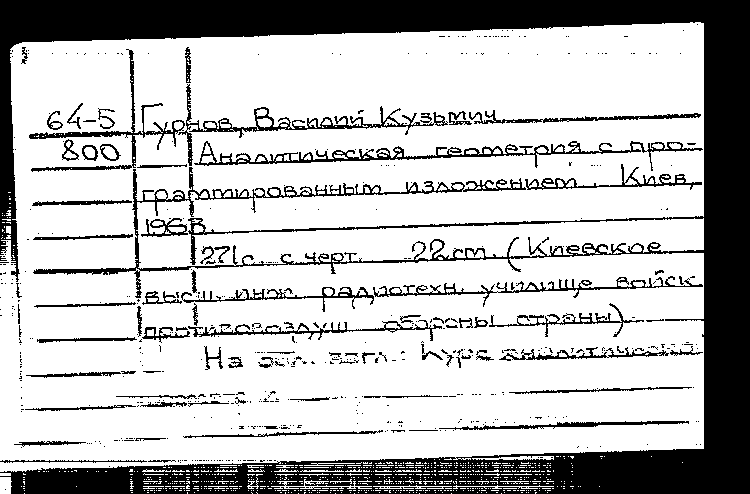 64-5 Гурнов, Василий Кузьмич
800 Аналитическая геометрия с про-
граммированным изложением. Киев,
1963.
271с. с черт. 22 cm. (Киевское
высш. инж. радиотехн. училище войск
противовоздуш обороны страны).
На обл. загл.: Курс аналитическо